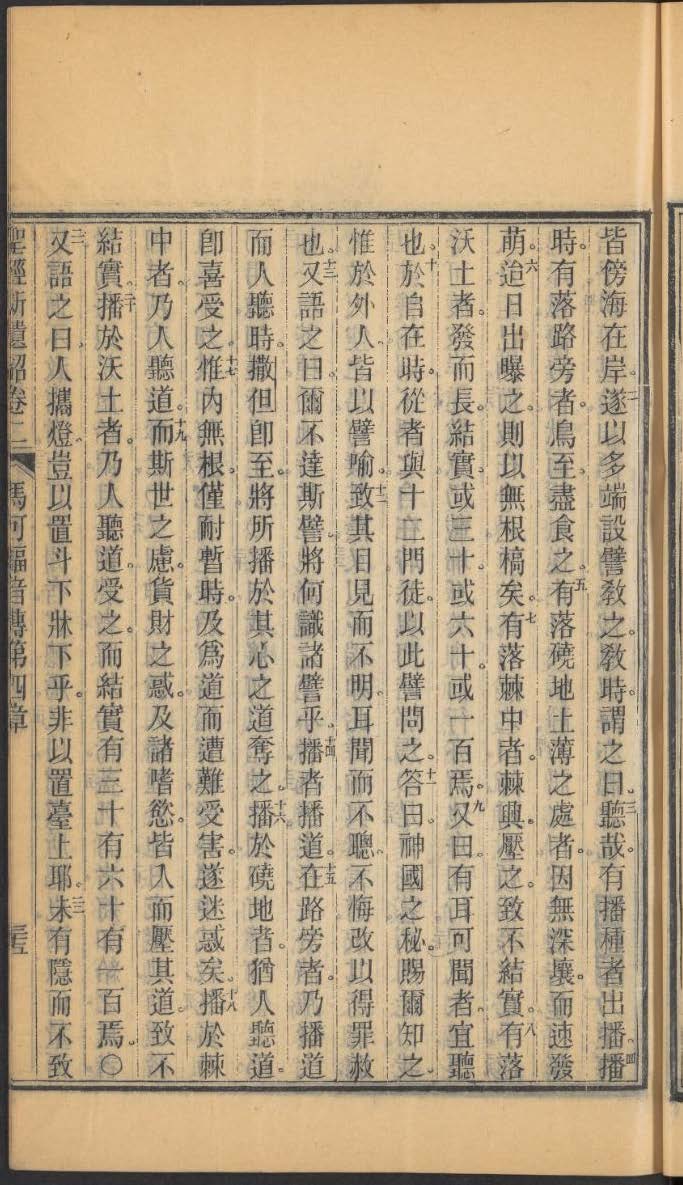 皆傍海在岸。二遂以多端設譬敎之。敎時。謂之曰。三聽哉。有播種者出播。四播
時。有落路旁者。鳥至盡食之。五有落磽地土薄之處者。因無深壤。而速發
萌。六迨日出曝之。則以無根槁矣。七有落棘中者。棘興。壓之。致不結實。八有落
沃土者。發而長。結實。或三十。或六十。或一百焉。九又曰。有耳可聞者。宜聽
也。十於自在時。從者與十二門徒。以此譬問之。十一答曰。神國之秘。賜爾知之。
惟於外人。皆以譬喻。十二致其目見而不明。耳聞而不聰。不悔改以得罪赦
也。十三又語之曰。爾不達斯譬。將何識諸譬乎。十四播者播道。十五在路旁者。乃播道
而人聽時。撒但卽至。將所播於其心之道奪之。十六播於磽地者。猶人聽道。
卽喜受之。十七惟內無根。僅耐暫時。及爲道而遭難受害。遂迷惑矣。十八播於棘
中者。乃人聽道。十九而斯世之慮。貨財之惑。及諸嗜慾。皆入而壓其道。致不
結實。二十播於沃土者。乃人聽道。受之。而結實。有三十有六十有一百焉。〇
二一又語之曰。人攜燈。豈以置斗下牀下乎。非以置臺上耶。二二未有隱而不致
聖經新遺詔卷二 馬可福音傳第四章 三五